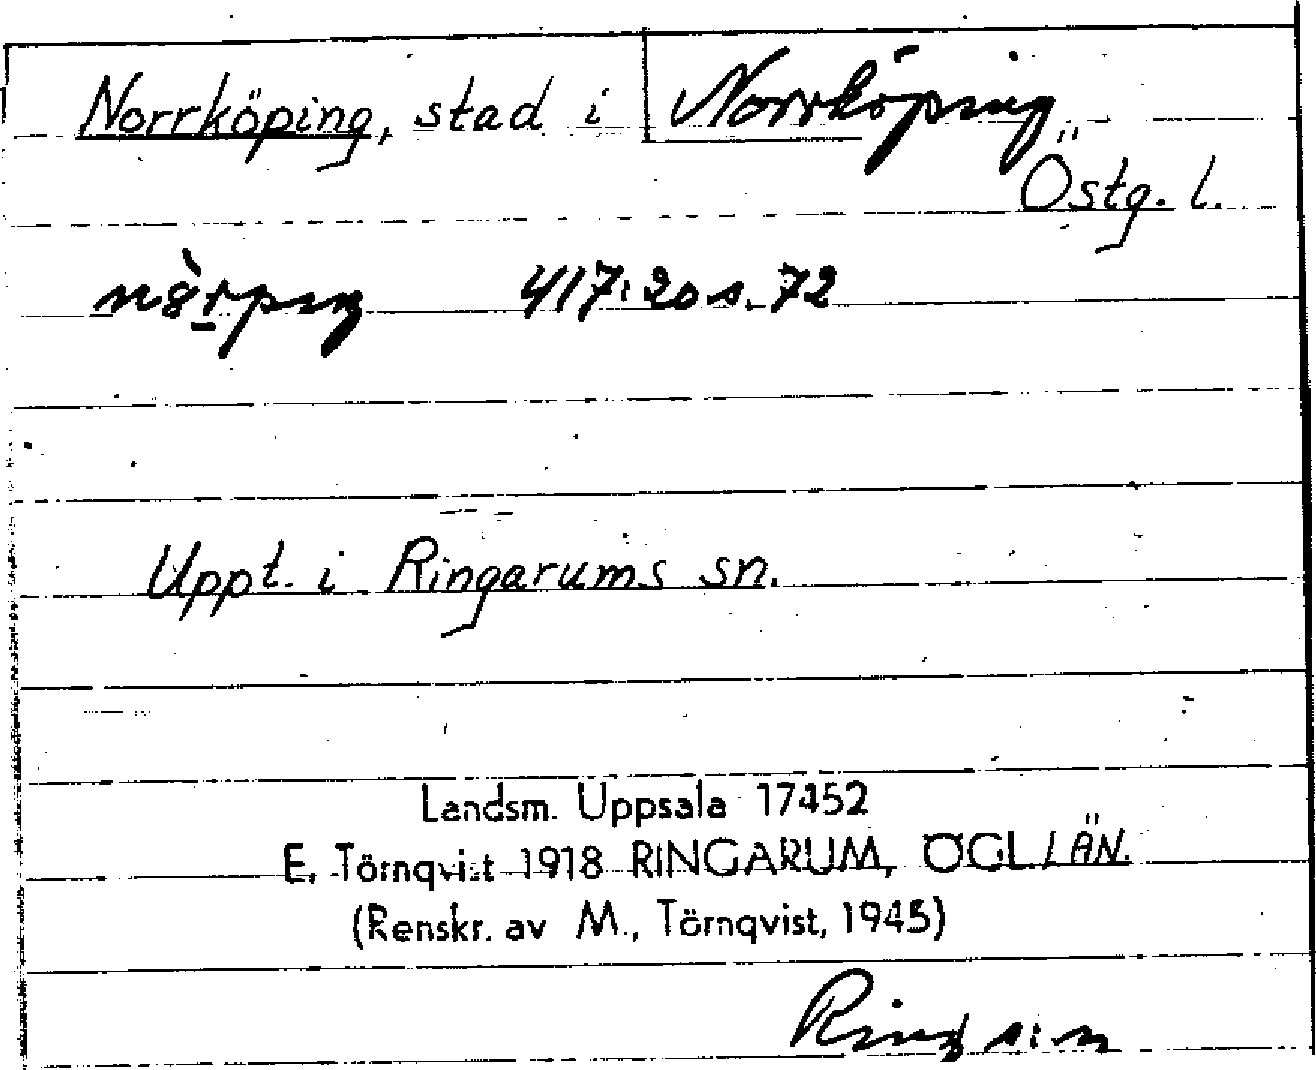 Norrköping, stad i Norrköping
Östg. l.
417:20 s. 72
Uppt. i Ringarums sn.
Landsm. Uppsala 17452
E. Törnqvist 1918 RINGARUM, ÖGL/ÄN.
(Renskr. av M., Törnqvist, 1945)